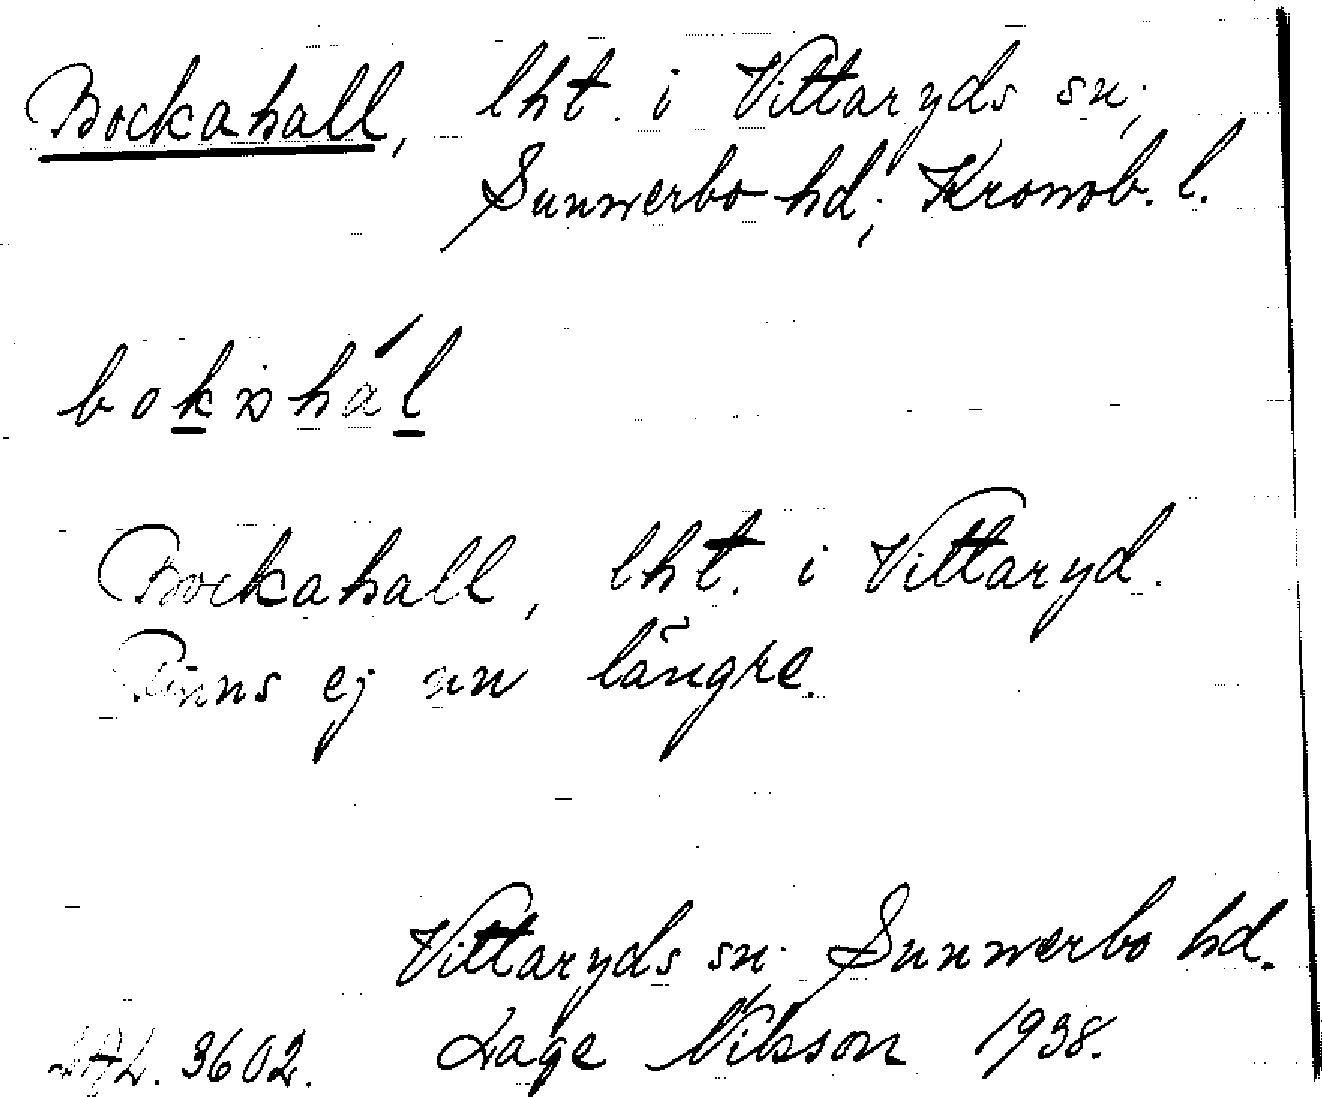 Bockahall, lht. i Vittaryds sn;
Sunnerbo hd; Kronob. l.
Bockahall, lht. i Vittaryd.
Finns ej nu längre.
Vittaryds sn. Sunnerbo hd.
3602. Lage Nilsson 1938.